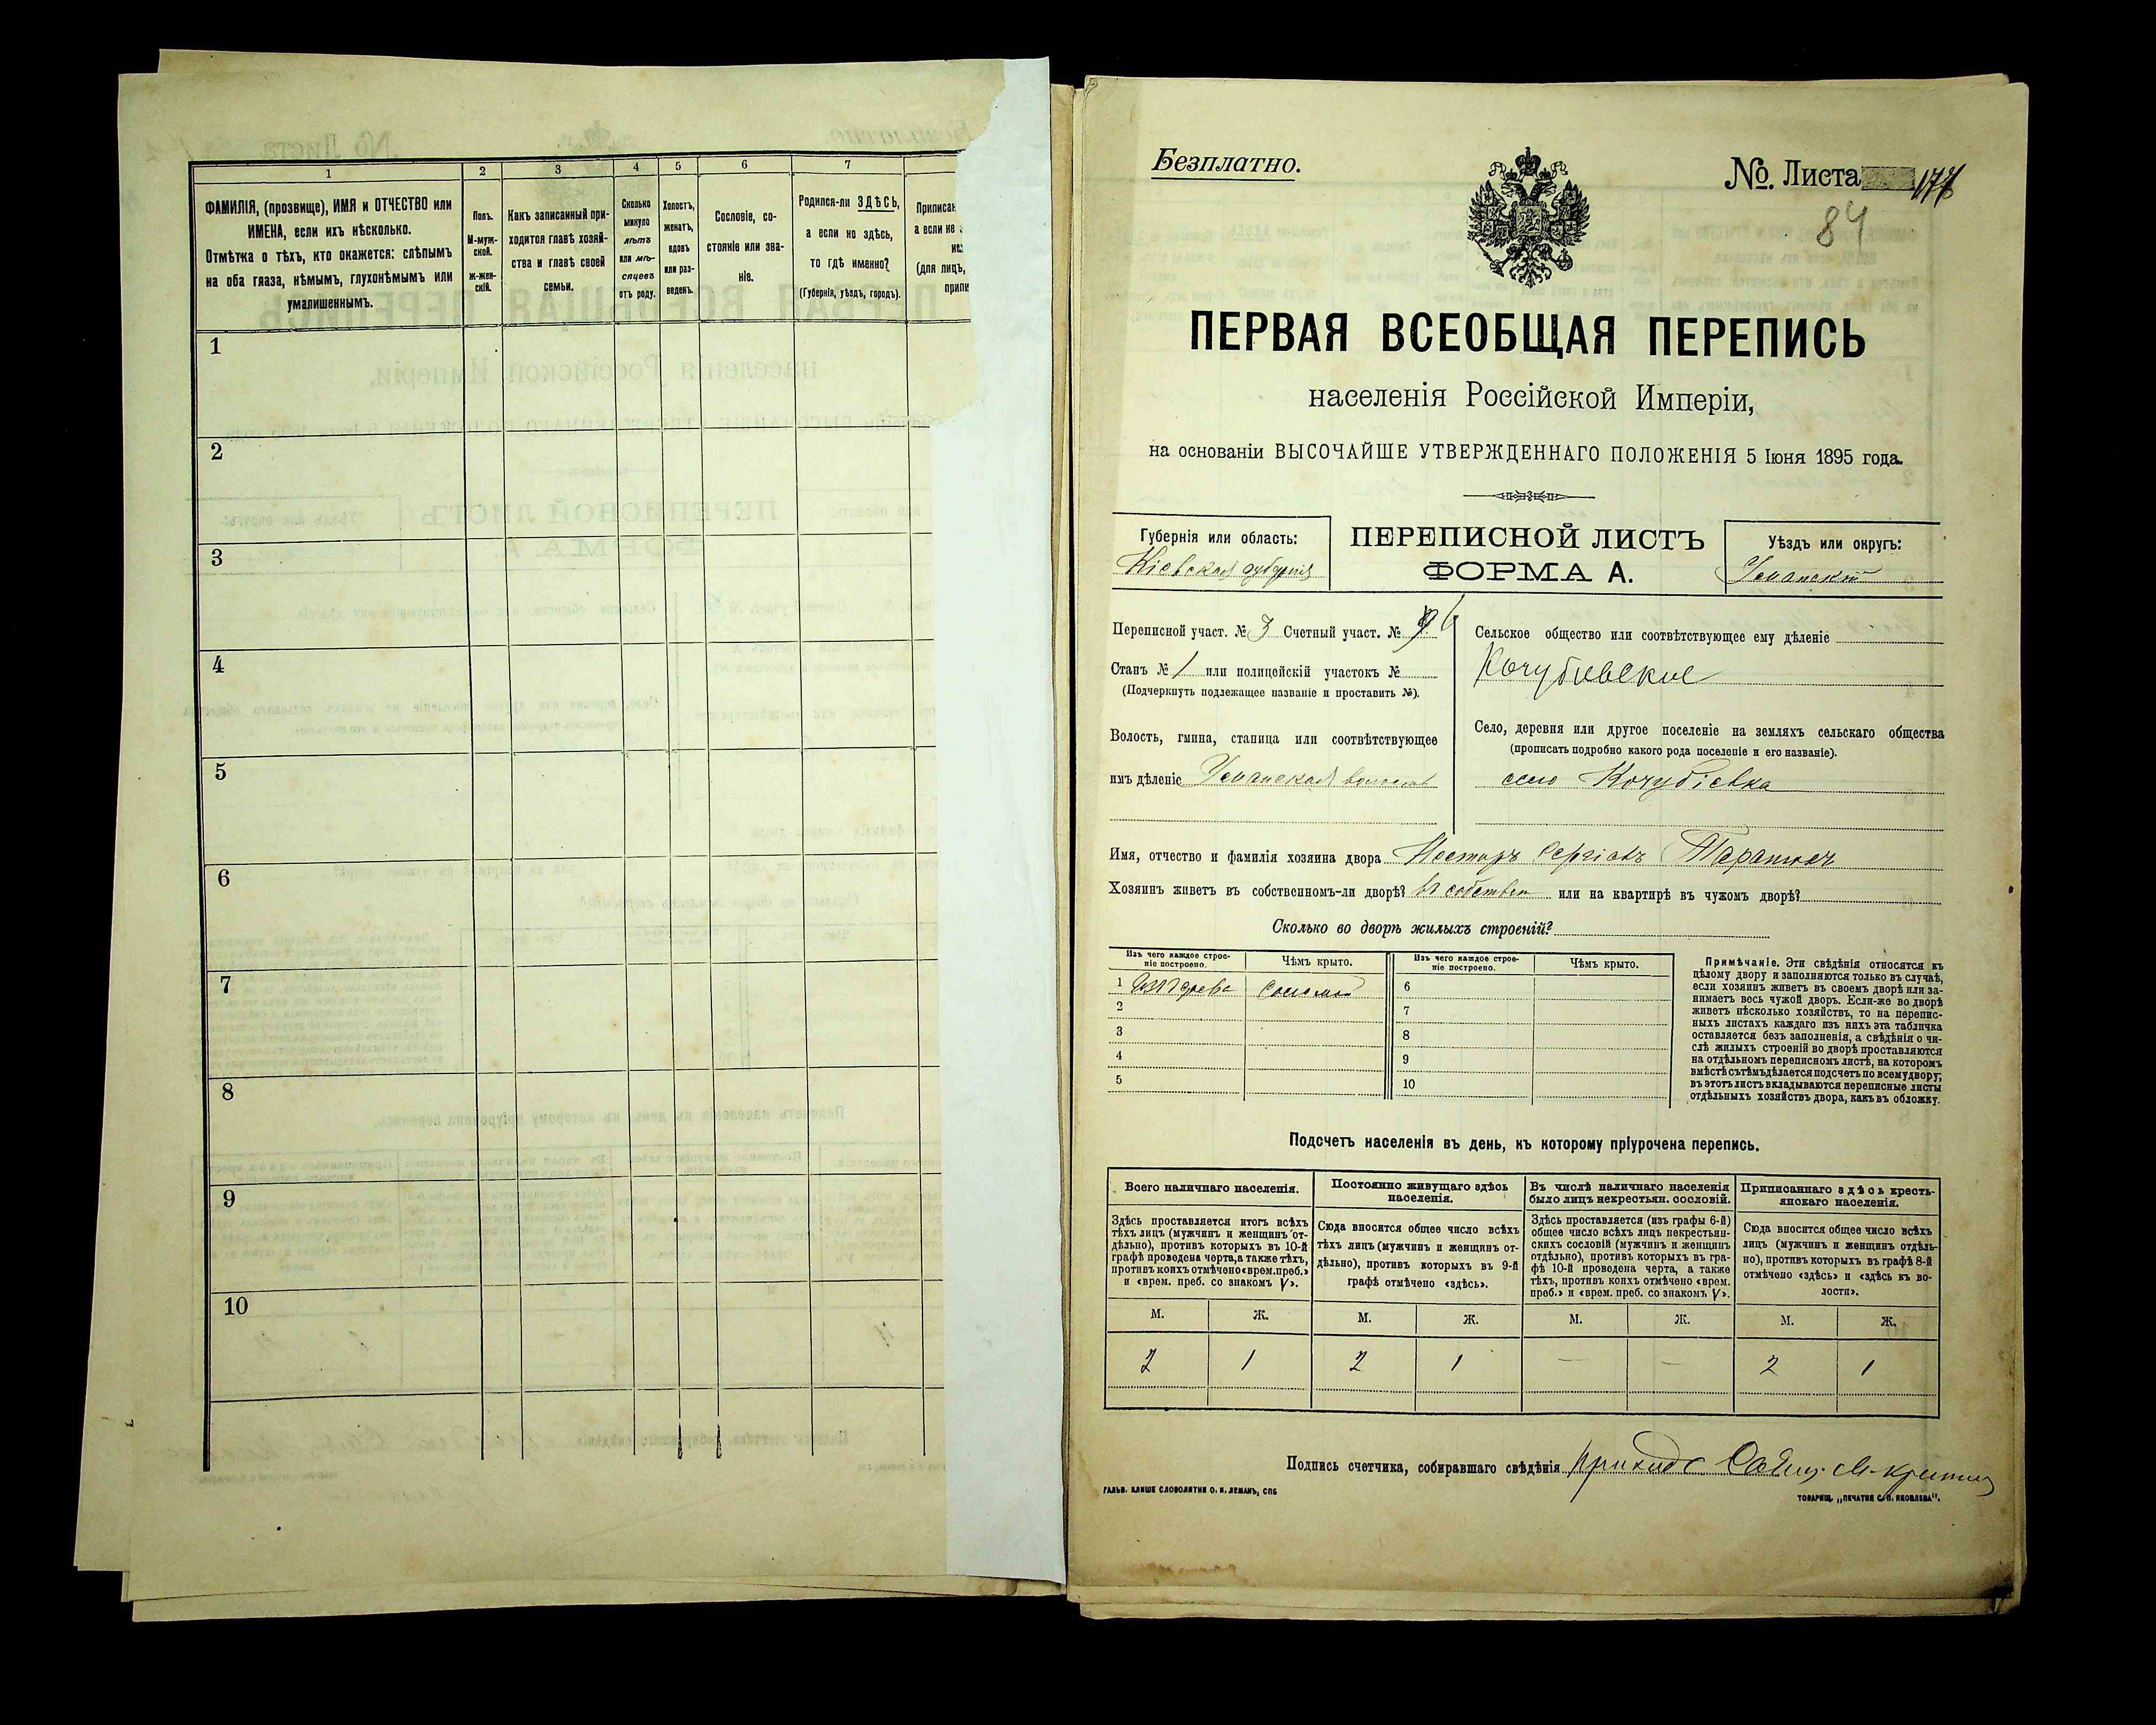 1
2
3
4
5
6
7
ФАМИЛІЯ, (прозвище), ИМЯ и ОТЧЕСТВО или
ИМЕНА, если ихъ нѣсколько.
Отмѣтка о тѣхъ, кто окажется: слѣпымъ
на оба глаза, нѣмымъ, глухонѣмымъ или
умалишеннымъ.
Полъ.
М-муж-
ской.
ж-жен-
скій.
Какъ записанный при-
ходится главѣ хозяй-
ства и главѣ своей
семьи.
Сколько
минуло
лѣтъ
или мѣ-
сяцевъ
отъ роду.
Холостъ,
женатъ,
вдовъ
или раз-
веденъ.
Сословіе, со-
стояніе или зва-
ніе.
Родился-ли ЗДѢСЬ,
а если не здѣсь,
то гдѣ именно?
(Губернія, уѣздъ, городъ).
1
2
3
4
5
6
7
8
9
10
Безплатно.
№. Листа
84
ПЕРВАЯ ВСЕОБЩАЯ ПЕРЕПИСЬ
населенія Россійской Имперіи,
на основаніи ВЫСОЧАЙШЕ УТВЕРЖДЕННАГО ПОЛОЖЕНІЯ 5 Іюня 1895 года.
Губернія или область:
Кіевская губернія
ПЕРЕПИСНОЙ ЛИСТЪ
ФОРМА А.
Уѣздъ или округъ:
Уманскій
Переписной участ. № 3 Счетный участ. №
Станъ № 1 или полицейскій участокъ №
(Подчеркнуть подлежащее названіе и проставить №).
Волость, гмина, станица или соотвѣтствующее
имъ дѣленіе Уманская волость
Сельское общество или соотвѣтствующее ему дѣленіе
Кочубіевское
Село, деревня или другое поселеніе на земляхъ сельскаго общества
(прописать подробно какого рода поселеніе и его названіе).
село Кочубіевка
Имя, отчество и фамилія хозяина двора Несторъ Сергіевъ
Хозяинъ живетъ въ собственномъ-ли дворѣ? въ собствен или на квартирѣ въ чужомъ дворѣ?
Сколько во дворѣ жилыхъ строеній?
Изъ чего каждое строе-
ніе построено.
Чѣмъ крыто.
Изъ чего каждое строе-
ніе построено.
Чѣмъ крыто.
1 Изъ дерева Соломой
2
3
4
5
6
7
8
9
10
Примѣчаніе. Эти свѣдѣнія относятся къ
цѣлому двору и заполняются только въ случаѣ,
если хозяинъ живетъ въ своемъ дворѣ или за-
нимаетъ весь чужой дворъ. Если-же во дворѣ
живетъ нѣсколько хозяйствъ, то на перепис-
ныхъ листахъ каждаго изъ нихъ эта табличка
оставляется безъ заполненія, а свѣдѣнія о чи-
слѣ жилыхъ строеній во дворѣ проставляются
на отдѣльномъ переписномъ листѣ, на которомъ
вмѣстѣ съ тѣмъ дѣлается подсчетъ по всему двору;
въ этотъ листъ вкладываются переписные листы
отдѣльныхъ хозяйствъ двора, какъ въ обложку.
Подсчетъ населенія въ день, къ которому пріурочена перепись.
Всего наличнаго населенія.
Здѣсь проставляется итогъ всѣхъ
тѣхъ лицъ (мужчинъ и женщинъ от-
дѣльно), противъ которыхъ въ 10-й
графѣ проведена черта, а также тѣхъ,
противъ коихъ отмѣчено «врем. преб.»
и «врем. преб. со знакомъ V».
Постоянно живущаго здѣсь
населенія.
Сюда вносится общее число всѣхъ
тѣхъ лицъ (мужчинъ и женщинъ от-
дѣльно), противъ которыхъ въ 9-й
графѣ отмѣчено «здѣсь».
Въ числѣ наличнаго населенія
было лицъ некрестьян. сословій.
Здѣсь проставляется (изъ графы 6-й)
общее число всѣхъ лицъ некрестьян-
скихъ сословій (мужчинъ и женщинъ
отдѣльно), противъ которыхъ въ гра-
фѣ 10-й проведена черта, а также
тѣхъ, противъ коихъ отмѣчено «врем.
преб.» и «врем. преб. со знакомъ V».
Приписаннаго здѣсь кресть-
янскаго населенія.
Сюда вносится общее число всѣхъ
лицъ (мужчинъ и женщинъ отдѣль-
но), противъ которыхъ въ графѣ 8-й
отмѣчено «здѣсь» и «здѣсь къ во-
лости».
М. Ж. М. Ж. М. Ж. М. Ж.
2 1 2 1 — — 2 1
Подпись счетчика, собиравшаго свѣдѣнія
ГАЛЬВ. КЛИШЕ СЛОВОЛИТНИ О. И. ЛЕМАНЪ, СПБ
ТОВАРИЩ. „ПЕЧАТНЯ С. П. ЯКОВЛЕВА".